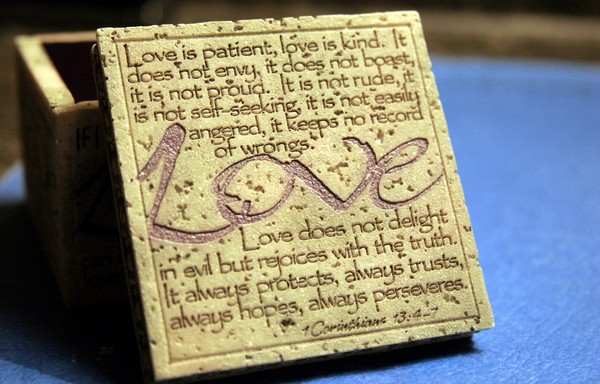 Love is patient, love is kind. It
does not envy, it does not boast,
it is not proud. It is not rude, it
is not self-seeking, it is not easily
angered, it keeps no record
of wrongs.
Love
Love does not delight
in evil but rejoices with the truth.
It always protects, always trusts,
always hopes, always perseveres.
1 Corinthians 13:4-7
IF I